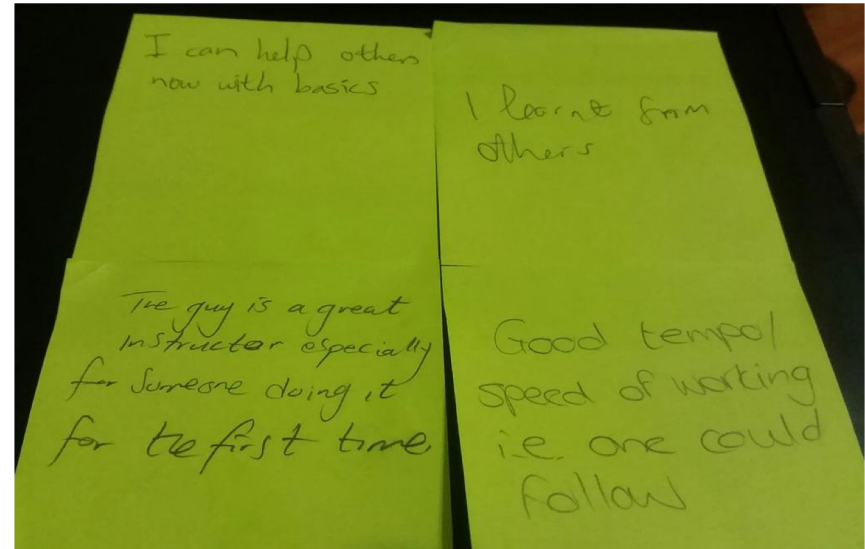 I can help others
now with basics
I learnt from
others
The guy is a great
instructor especially
for someone doing it
for the first time.
Good tempo/
speed of working
i.e. one could
follow